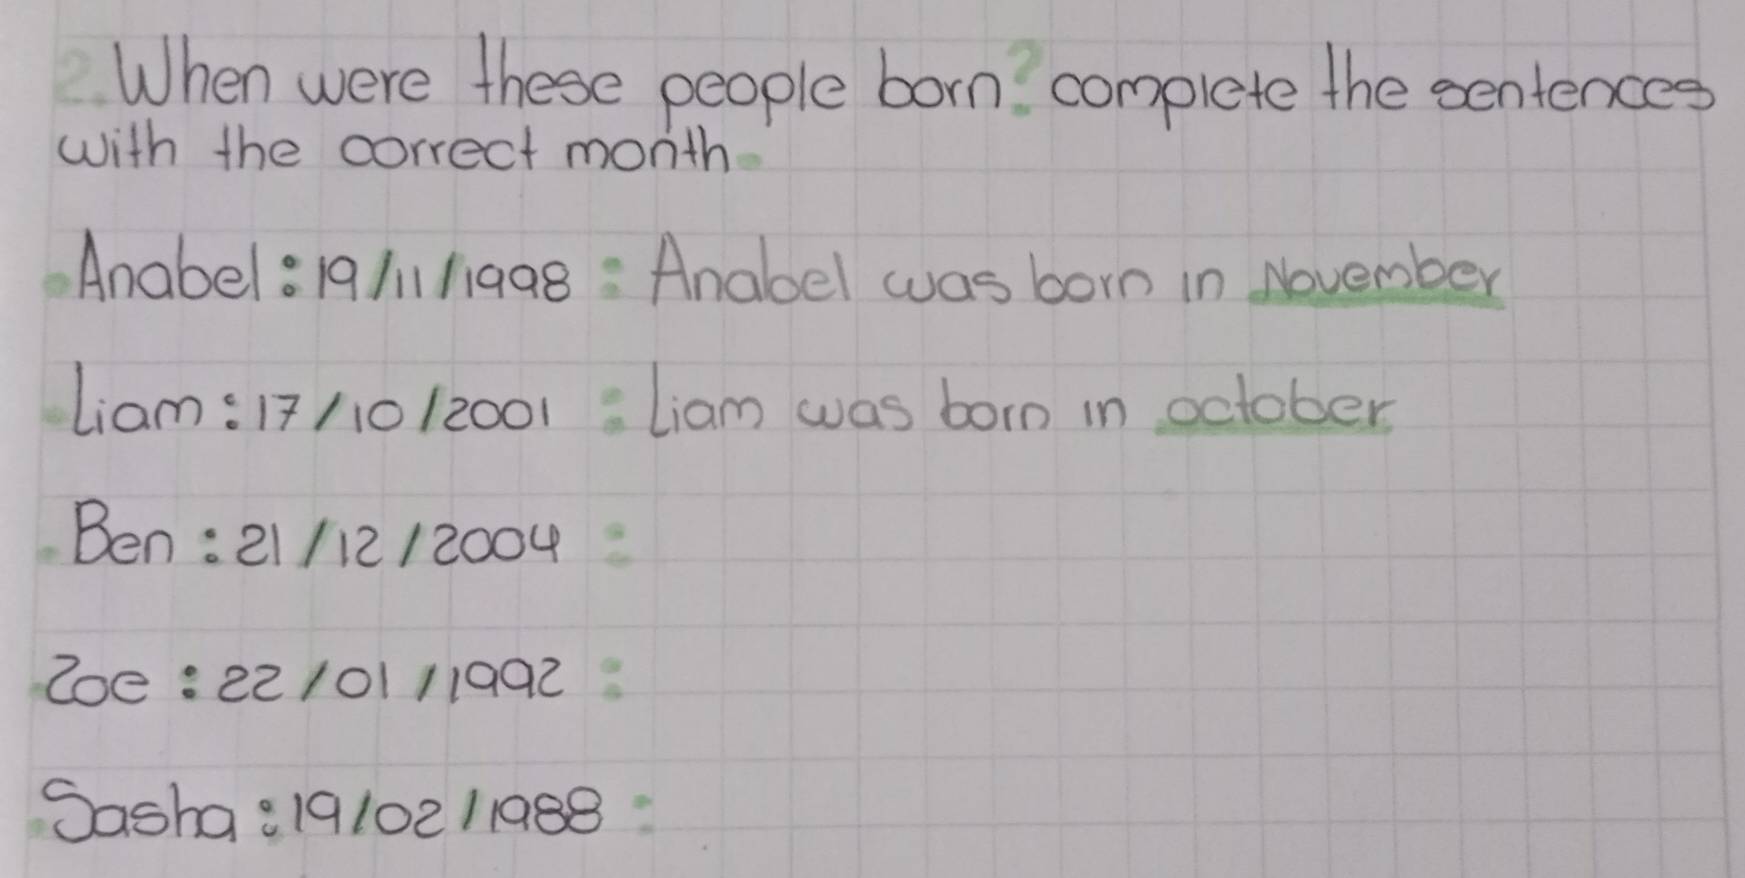 2. When were these people born? complete the sentences
with the correct month.
• Anabel: 19/11/1998: Anabel was born in November
• Liam: 17/10/2001: Liam was born in october
• Ben: 21/12/2004:
• Zoe: 22/01/1992:
• Sasha: 19/02/1988: